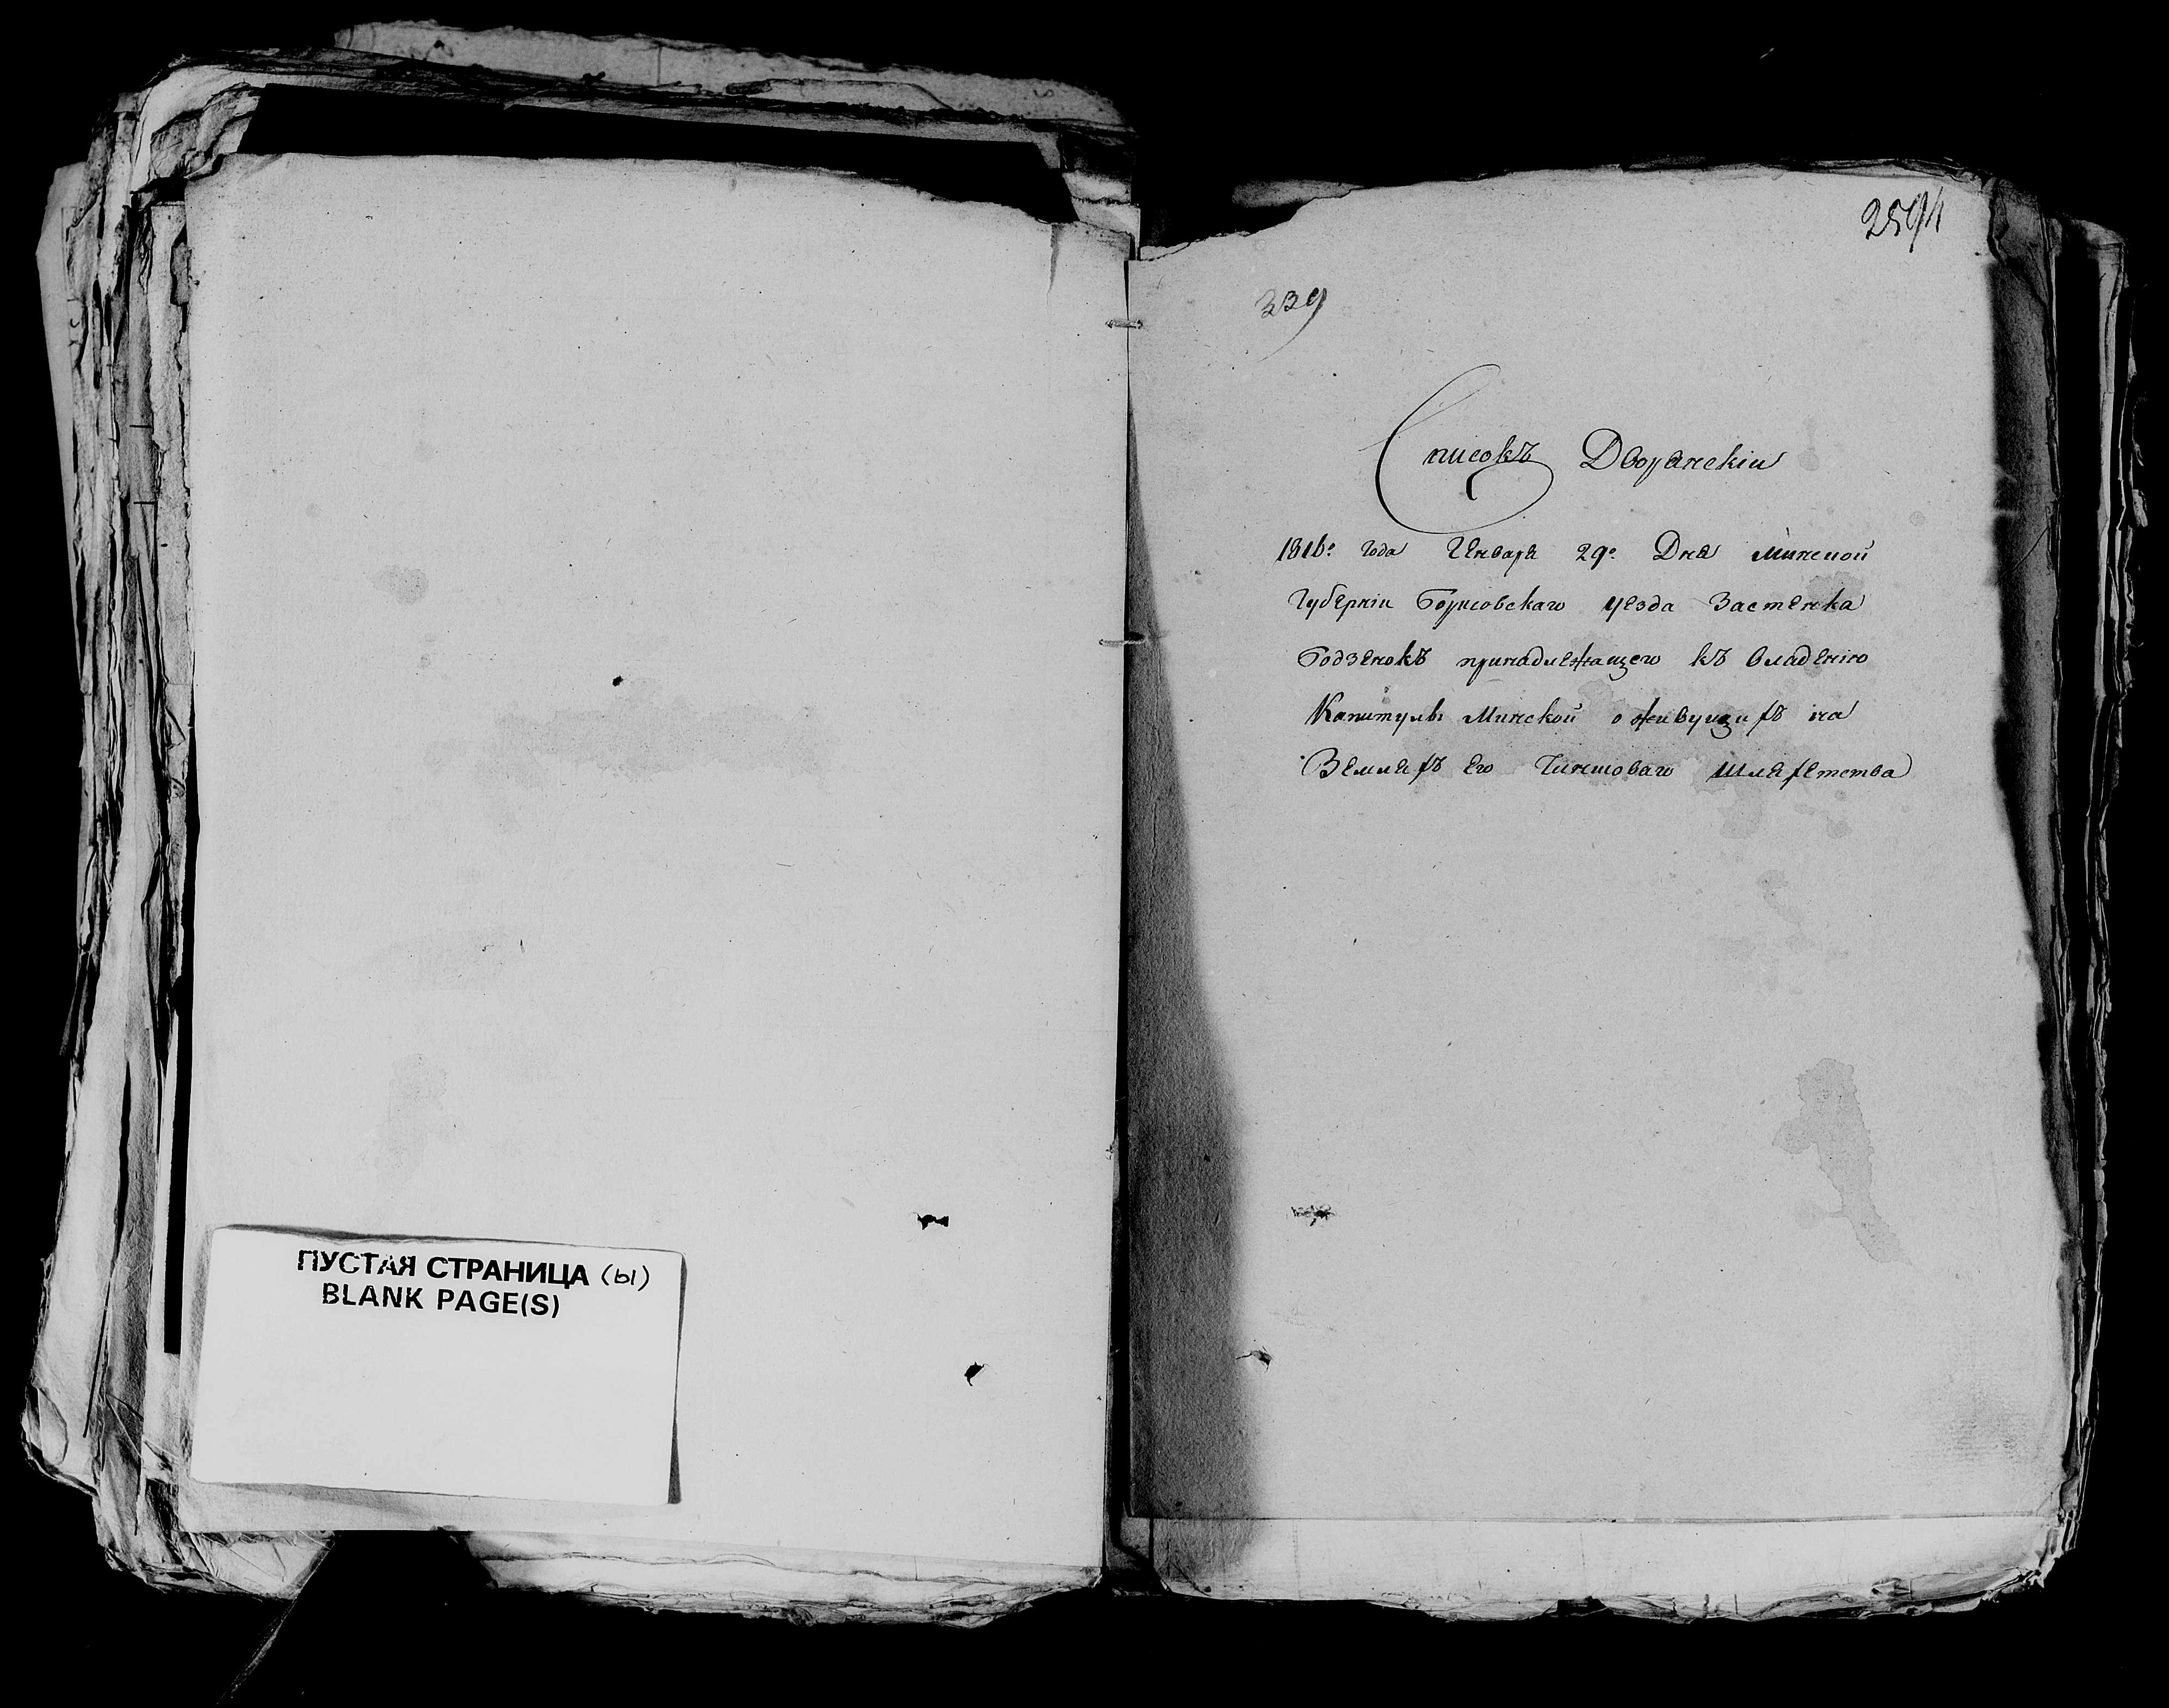 2594
339
Списокъ Дворянскiи
1816º года Генваря 29º Дня Минской
Губернiи Борисовскаго уезда Застенка
Бодзенокъ принадлежащего къ владенiю
Капитулы Минской о живущихъ на
Землехъ Его Чиншоваго Шляхетства
ПУСТАЯ СТРАНИЦА (ы)
BLANK PAGE(S)